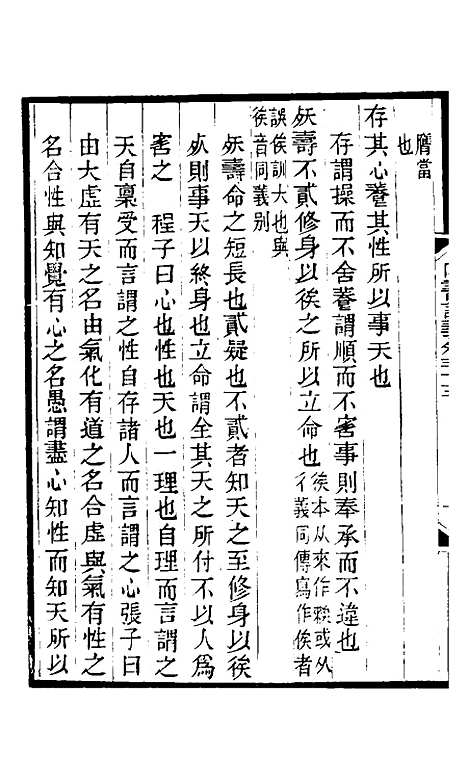 膺當
也
存其心養其性所以事天也
存謂操而不舍養謂順而不害事則奉承而不違也
殀壽不貳修身以俟之所以立命也
俟本从來作𥏳或从
彳義同傳寫作俟者
誤俟訓大也與
俟音同義别
殀壽命之短長也貳疑也不貳者知天之至修身以俟
死則事天以終身也立命謂全其天之所付不以人爲
害之 程子曰心也性也天也一理也自理而言謂之
天自稟受而言謂之性自存諸人而言謂之心張子曰
由大虚有天之名由氣化有道之名合虚與氣有性之
名合性與知覺有心之名愚謂盡心知性而知天所以